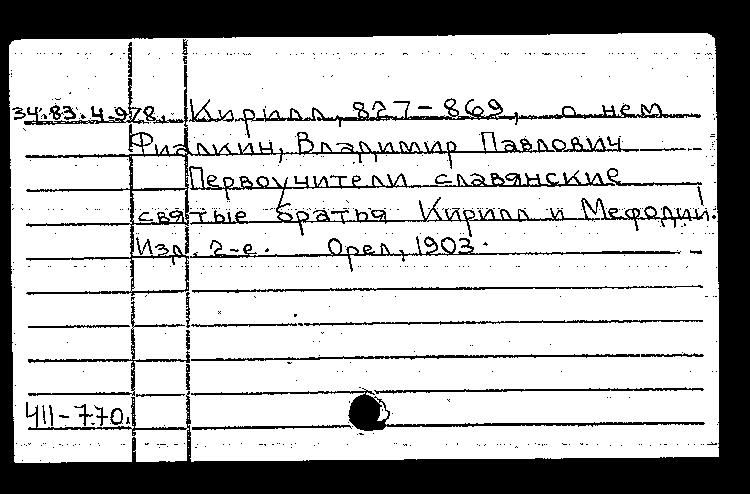 34.83.4.978. Кирилл, 827-869, о нем
Фиалкин, Владимир Павлович
Первоучители славянские
святые братья Кирилл и Мефодий.
Изд. 2-е. Орел, 1903.
411-770.